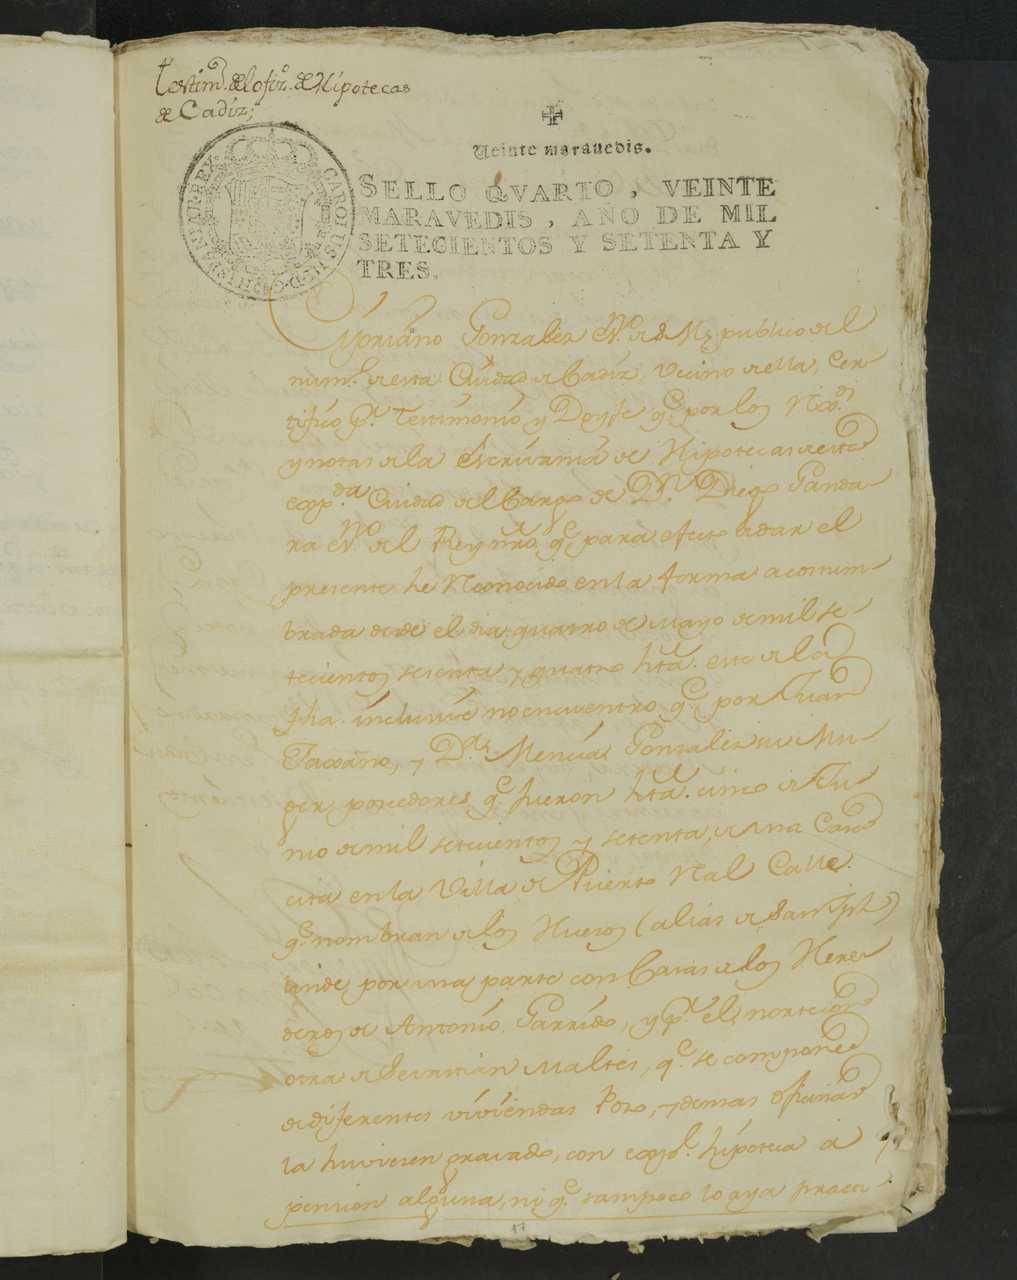 Testim.º del ofiz.º de Hipotecas
de Cadiz;
Veinte maravedis.
SELLO QVARTO, VEINTE
MARAVEDIS, AÑO DE MIL
SETECIENTOS Y SETENTA Y
TRES.
CAROLUS III D G HISPANIAR REX
Cypriano Gonzalez Ess.no de S. M. publico del
num.º de esta Ciudad de Cadiz, Vecino de ella, Cer-
tifico p.r Testimonio y Doy fe q.e por los
y notas de la Escrivania de Hipotecas de esta
exp.da Ciudad del Cargo de D.n Diego Ganda-
ra Ess.no del Rey ntro. q.e para efecto de dar el
presente he Reconocido en la forma acostum-
brada desde el dia quatro de Mayo de mil se-
tecientos setenta y quatro hta. este de la
fha. inclusive no encuentro q.e por Juan
y D.a Mencia Gonzalez su Mu-
ger poseedores q.e fueron hta. cinco de Ju-
nio de mil setecientos y setenta, de una Casa
cita en la Villa de Puerto Real Calle
q.e nombran de los Huesos (alias de San Jph.)
linde por una parte con Casas de los Here-
deros de Antonio Garrido, y p.r el norte con
otra de Sevastian Maltes, q.e se compone
de diferentes viviendas Pozo, y demas oficinas
la huviesen gravado, con exp.l hipoteca a
pension alguna, ni q.e tampoco lo aya practi-
17